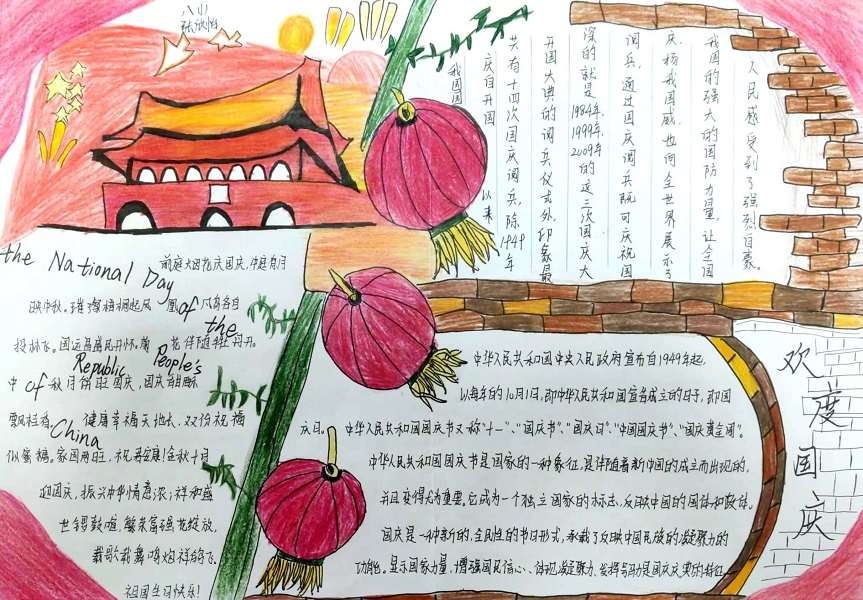 八小
张欣怡
我国国
庆自开国 以来
共有十四次国庆阅兵，除1949年
开国大典的阅兵仪式外，印象最
深的就是1984年、1999年、2009年的这三次国庆大
阅兵，通过国庆阅兵既可庆祝国
庆、杨我国威，也向全世界展示了
我国的强大的国防力量，让全国
人民感受到了强烈自豪。
the National Day
of the
People's
Republic
of
China
前庭大团花庆国庆，后庭有月
映中秋。璀璨梧桐起风凰 瓜岛各自
投林飞。国运昌盛民开怀。
中秋月饼 国庆，国庆
飘桂香。健康幸福天地长，双份祝福
似蜜糖。家国两旺，祝 安康！金秋十月
迎国庆，振兴中华情意浓；祥和盛
世锣鼓喧，繁荣富强花绽放，
载歌载舞鸣炮祥鸽飞。
祖国生日快乐！
中华人民共和国中央人民政府宣布自1949年起，
以每年的10月1日，即中华人民共和国宣告成立的日子，即国
庆日。中华人民共和国国庆节又称"十一"、"国庆节"、"国庆日"、"中国国庆节"、"国庆黄金周"。
中华人民共和国国庆节是国家的一种象征，是伴随着新中国的成立而出现的，
并且变得尤为重要。它成为一个独立国家的标志，反映中国的国体和政体。
国庆是一种新的、全民性的节日形式，承载了反映中国民族的凝聚力的
功能。显示国家力量、增强国民信心、体现凝聚力、发挥号召力是国庆庆典的特征。
欢度国庆